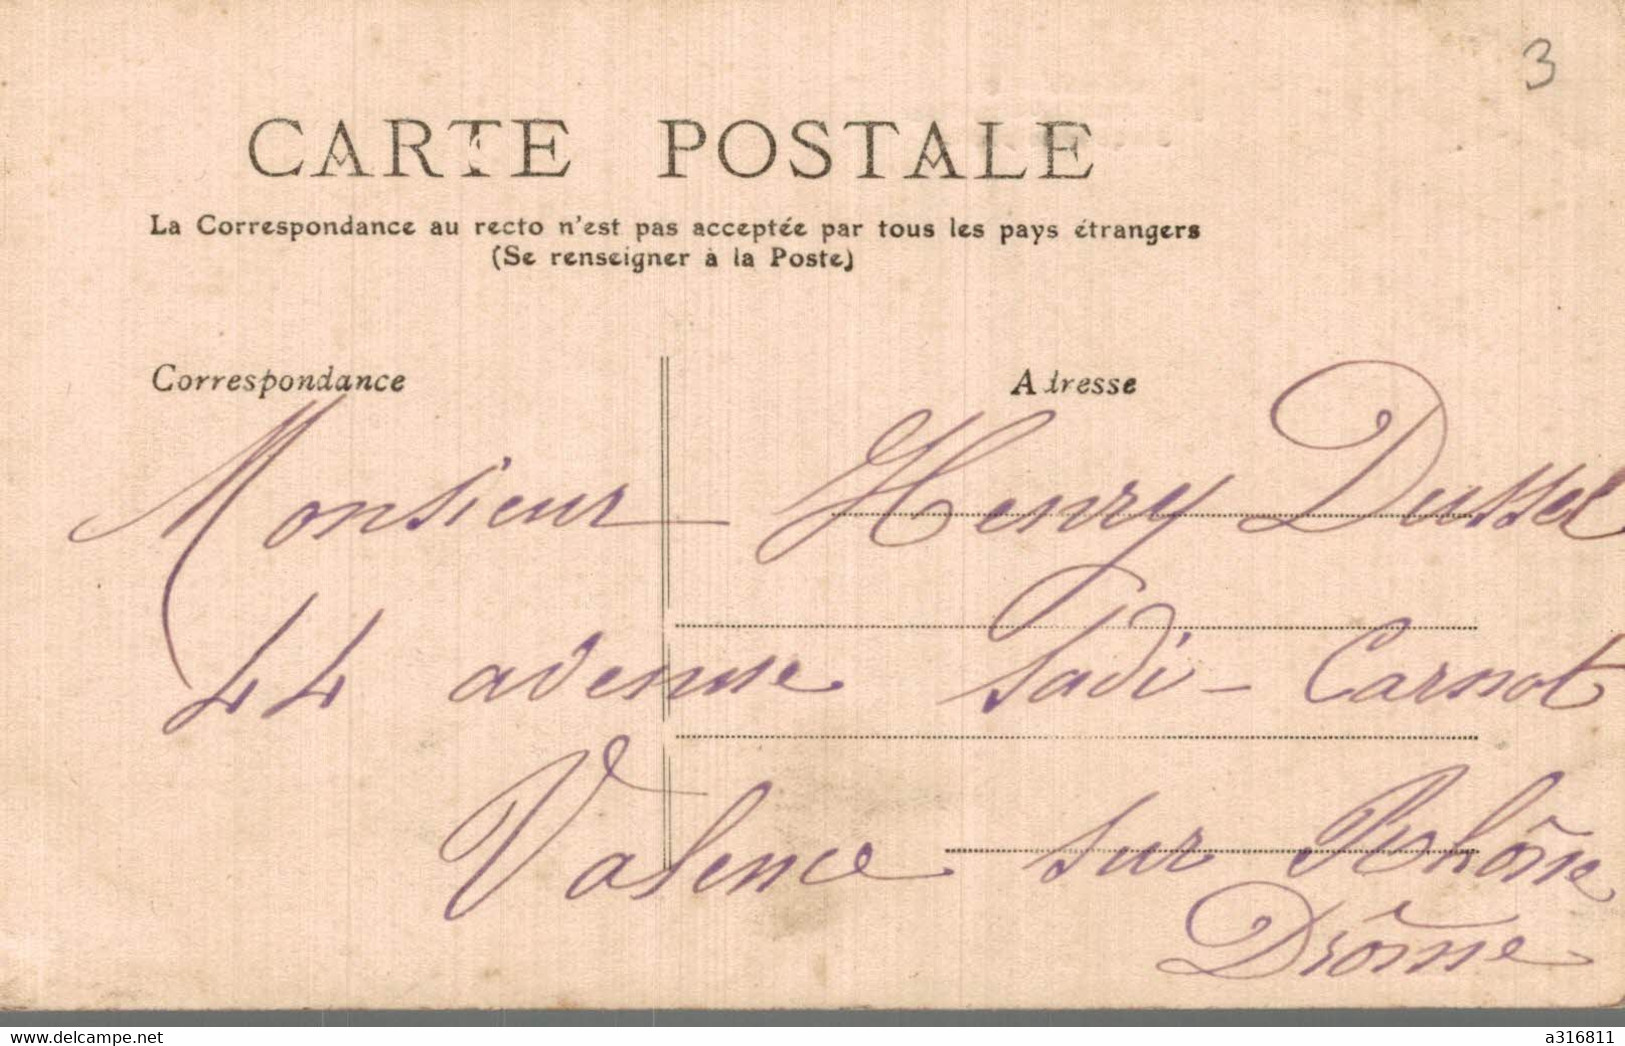 3
CARTE POSTALE
La Correspondance au recto n'est pas acceptée par tous les pays étrangers
(Se renseigner à la Poste)
Correspondance
Adresse
Monsieur Henry Dussel
44 avenue Sadi-Carnot
Valence sur Rhône
Drôme
www.delcampe.net
a316811